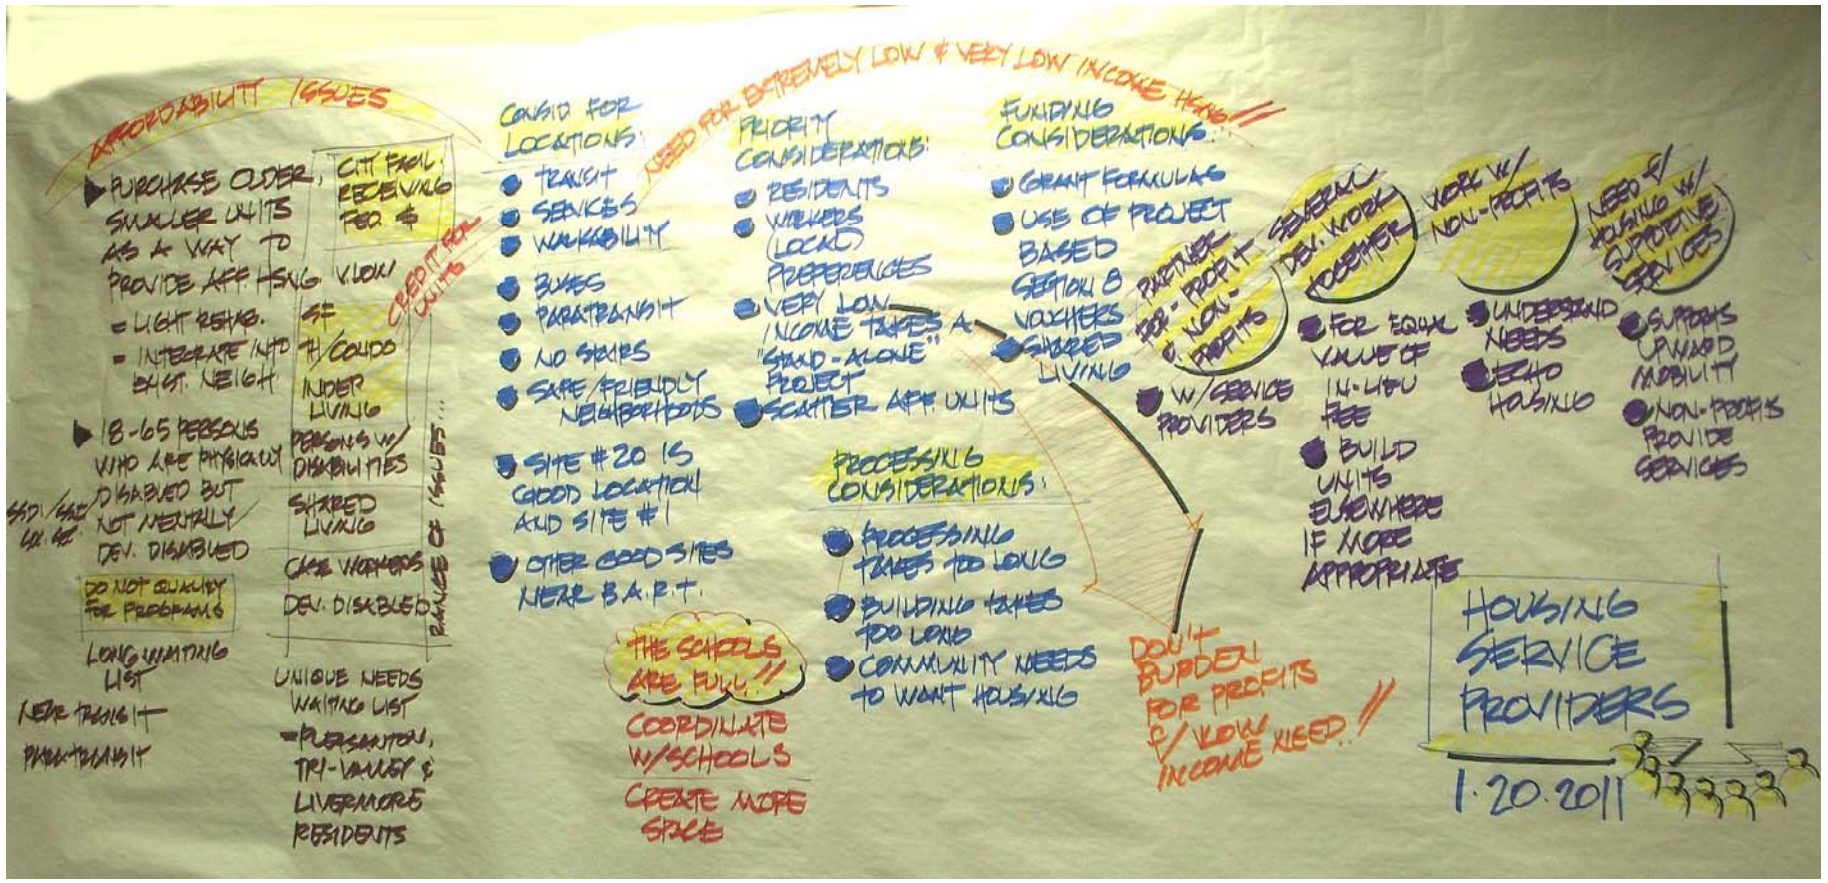 AFFORDABILITY ISSUES
PURCHASE OLDER,
SMALLER UNITS
AS A WAY TO
PROVIDE AFF. HSNG.
= LIGHT REHAB.
= INTEGRATE INTO
EXIST. NEIGH
18-65 PERSONS
WHO ARE PHYSICALLY
DISABLED BUT
NOT MENTALLY/
DEV. DISABLED
SSDI/SSI/
DO NOT QUALIFY
FOR PROGRAMS
LONG WAITING
LIST
NEAR TRANSIT
PARATRANSIT
CITY FACIL.
RECEIVING
FED. $
V. LOW
SF
TH/CONDO
INDEP
LIVING
PERSONS W/
DISABILITIES
SHARED
LIVING
CASE WORKERS
DEV. DISABLED
RANGE OF ISSUES...
UNIQUE NEEDS
WAITING LIST
= PLEASANTON,
TRI-VALLEY &
LIVERMORE
RESIDENTS
CREDIT FOR
UNITS
NEED FOR EXTREMELY LOW & VERY LOW INCOME HSNG!!
CONSID FOR
LOCATIONS:
TRANSIT
SERVICES
WALKABILITY
BUSES
PARATRANSIT
NO STAIRS
SAFE/FRIENDLY
NEIGHBORHOODS
SITE #20 IS
GOOD LOCATION
AND SITE #1
OTHER GOOD SITES
NEAR B.A.R.T.
THE SCHOOLS
ARE FULL!!
COORDINATE
W/SCHOOLS
CREATE MORE
SPACE
PRIORITY
CONSIDERATIONS:
RESIDENTS
WORKERS
(LOCAL)
PREFERENCES
VERY LOW
INCOME TAKES A
"STAND-ALONE"
PROJECT
SCATTER AFF. UNITS
PROCESSING
CONSIDERATIONS:
PROCESSING
TAKES TOO LONG
BUILDING TAKES
TOO LONG
COMMUNITY NEEDS
TO WANT HOUSING
FUNDING
CONSIDERATIONS:
GRANT FORMULAS
USE OF PROJECT
BASED
SECTION 8
VOUCHERS
SHARED
LIVING
DON'T
BURDEN
FOR PROFITS
F/ V.LOW
INCOME NEED!!
PARTNER
FOR-PROFIT
& NON-
PROFITS
W/SERVICE
PROVIDERS
SEVERAL
DEV. WORK
TOGETHER
FOR EQUAL
VALUE OF
IN-LIEU
FEE
BUILD
UNITS
ELSEWHERE
IF MORE
APPROPRIATE
WORK W/
NON-PROFITS
UNDERSTAND
NEEDS
ECHO
HOUSING
NEED F/
HOUSING W/
SUPPORTIVE
SERVICES
SUPPORTS
UPWARD
MOBILITY
NON-PROFITS
PROVIDE
SERVICES
HOUSING
SERVICE
PROVIDERS
1.20.2011